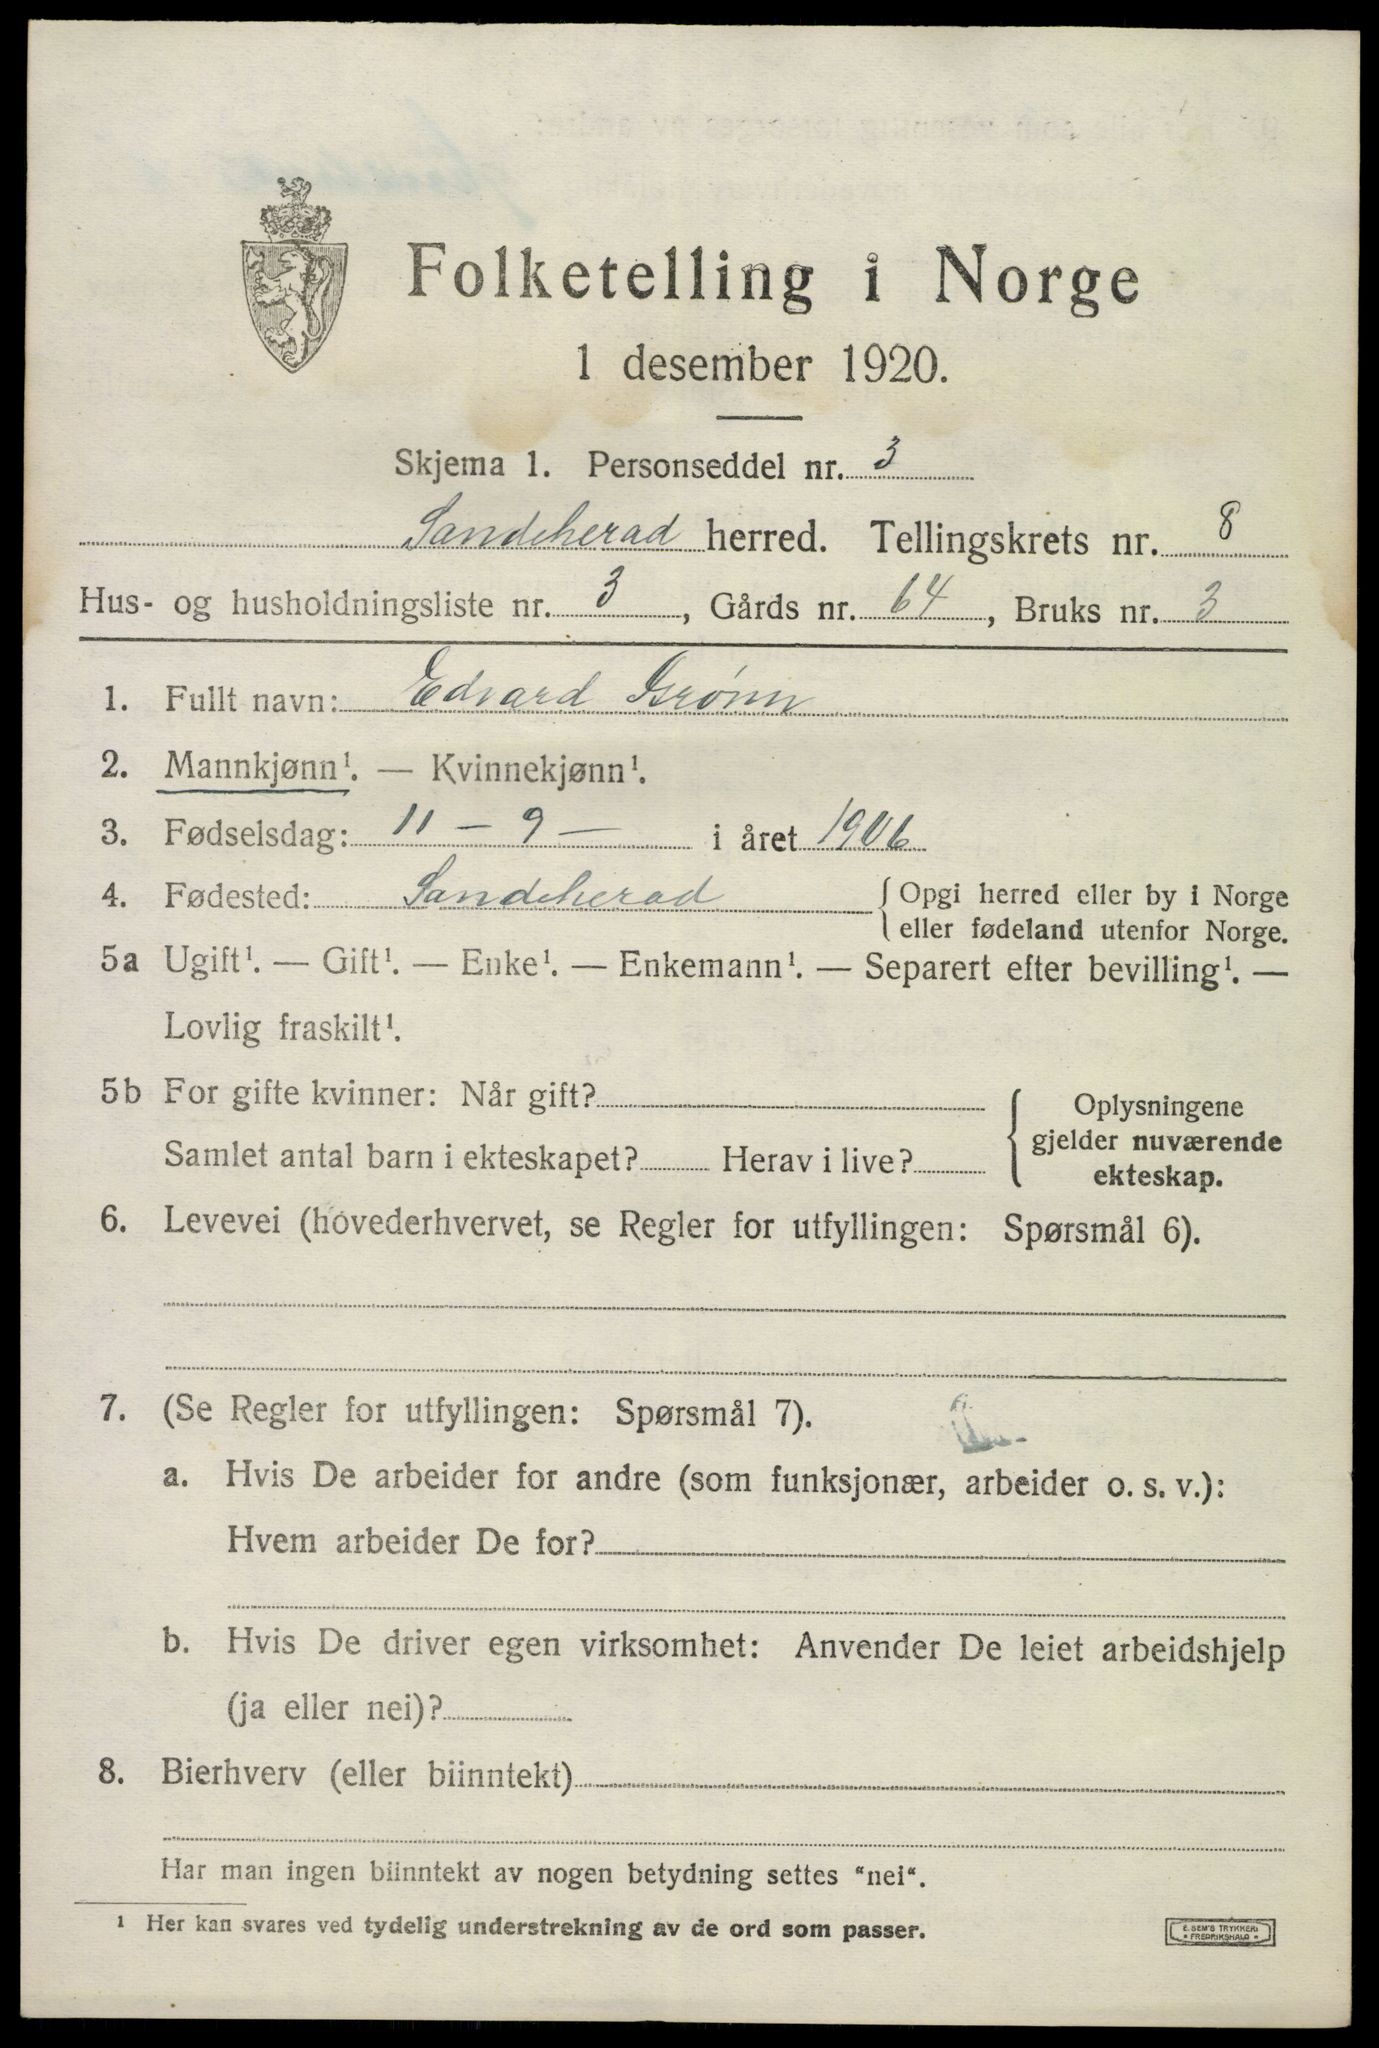 Folketelling i Norge
1 desember 1920.
Skjema 1. Personseddel nr. 3
Sandeherad herred. Tellingskrets nr. 8
Hus- og husholdningsliste nr. 3, Gårds nr. 64, Bruks nr. 3
1. Fullt navn: Edvard Grønn
2. Mannkjønn¹. — Kvinnekjønn¹.
3. Fødselsdag: 11 - 9 - i året 1906
4. Fødested: Sandeherad { Opgi herred eller by i Norge
eller fødeland utenfor Norge.
5a Ugift¹. — Gift¹. — Enke¹. — Enkemann¹. — Separert efter bevilling¹. —
Lovlig fraskilt¹.
5b For gifte kvinner: Når gift?
Samlet antal barn i ekteskapet? Herav i live?
{ Oplysningene
gjelder nuværende
ekteskap.
6. Levevei (hovederhvervet, se Regler for utfyllingen: Spørsmål 6).
7. (Se Regler for utfyllingen: Spørsmål 7).
a. Hvis De arbeider for andre (som funksjonær, arbeider o. s. v.):
Hvem arbeider De for?
b. Hvis De driver egen virksomhet: Anvender De leiet arbeidshjelp
(ja eller nei)?
8. Bierhverv (eller biinntekt)
Har man ingen biinntekt av nogen betydning settes "nei".
¹ Her kan svares ved tydelig understrekning av de ord som passer.
E. SEM'S TRYKKERI
* FREDRIKSHALD *